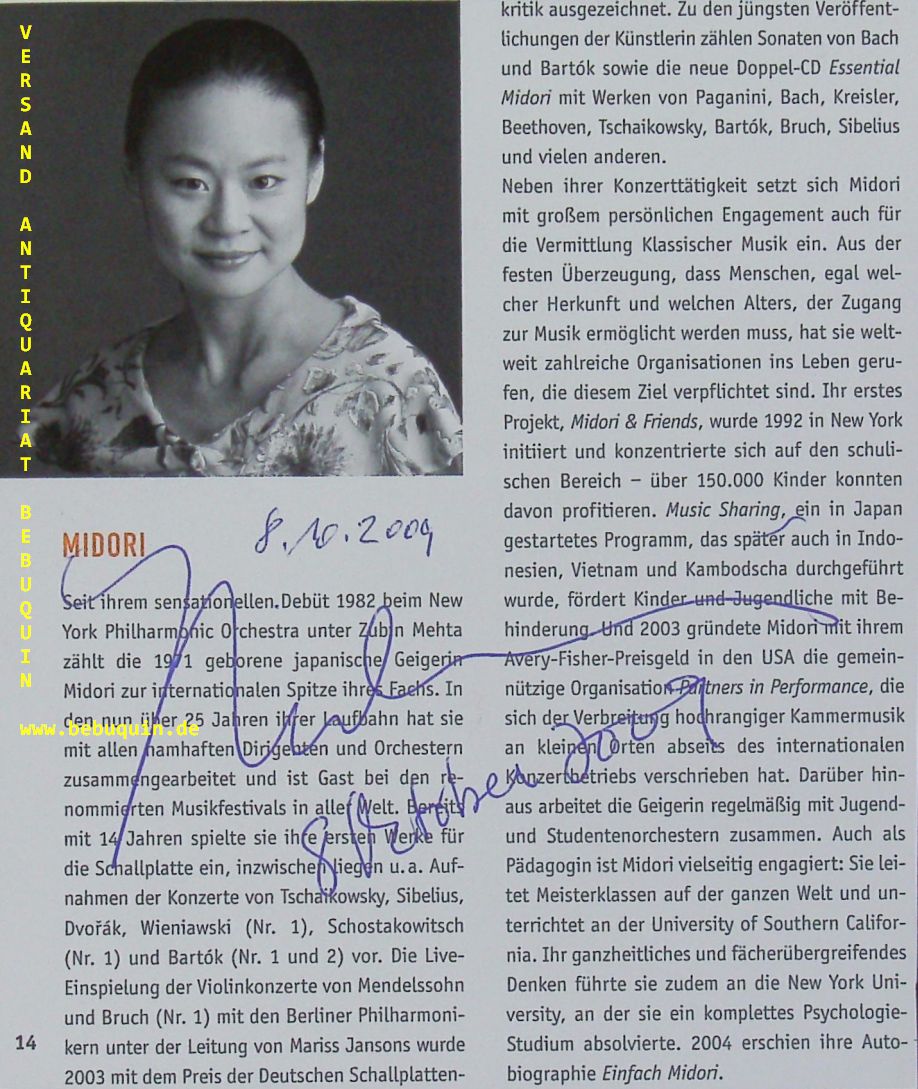 VERSAND ANTIQUARIAT BEBUQUIN
www.bebuquin.de
MIDORI
8.10.2009
Seit ihrem sensationellen Debüt 1982 beim New
York Philharmonic Orchestra unter Zubin Mehta
zählt die 1971 geborene japanische Geigerin
Midori zur internationalen Spitze ihres Fachs. In
den nun über 25 Jahren ihrer Laufbahn hat sie
mit allen namhaften Dirigenten und Orchestern
zusammengearbeitet und ist Gast bei den re-
nommierten Musikfestivals in aller Welt. Bereits
mit 14 Jahren spielte sie ihre ersten Werke für
die Schallplatte ein, inzwischen liegen u. a. Auf-
nahmen der Konzerte von Tschaikowsky, Sibelius,
Dvořák, Wieniawski (Nr. 1), Schostakowitsch
(Nr. 1) und Bartók (Nr. 1 und 2) vor. Die Live-
Einspielung der Violinkonzerte von Mendelssohn
und Bruch (Nr. 1) mit den Berliner Philharmoni-
kern unter der Leitung von Mariss Jansons wurde
2003 mit dem Preis der Deutschen Schallplatten-
14
kritik ausgezeichnet. Zu den jüngsten Veröffent-
lichungen der Künstlerin zählen Sonaten von Bach
und Bartók sowie die neue Doppel-CD Essential
Midori mit Werken von Paganini, Bach, Kreisler,
Beethoven, Tschaikowsky, Bartók, Bruch, Sibelius
und vielen anderen.
Neben ihrer Konzerttätigkeit setzt sich Midori
mit großem persönlichen Engagement auch für
die Vermittlung Klassischer Musik ein. Aus der
festen Überzeugung, dass Menschen, egal wel-
cher Herkunft und welchen Alters, der Zugang
zur Musik ermöglicht werden muss, hat sie welt-
weit zahlreiche Organisationen ins Leben geru-
fen, die diesem Ziel verpflichtet sind. Ihr erstes
Projekt, Midori & Friends, wurde 1992 in New York
initiiert und konzentrierte sich auf den schuli-
schen Bereich – über 150.000 Kinder konnten
davon profitieren. Music Sharing, ein in Japan
gestartetes Programm, das später auch in Indo-
nesien, Vietnam und Kambodscha durchgeführt
wurde, fördert Kinder und Jugendliche mit Be-
hinderung. Und 2003 gründete Midori mit ihrem
Avery-Fisher-Preisgeld in den USA die gemein-
nützige Organisation Partners in Performance, die
sich der Verbreitung hochrangiger Kammermusik
an kleinen Orten abseits des internationalen
Konzertbetriebs verschrieben hat. Darüber hin-
aus arbeitet die Geigerin regelmäßig mit Jugend-
und Studentenorchestern zusammen. Auch als
Pädagogin ist Midori vielseitig engagiert: Sie lei-
tet Meisterklassen auf der ganzen Welt und un-
terrichtet an der University of Southern Califor-
nia. Ihr ganzheitliches und fächerübergreifendes
Denken führte sie zudem an die New York Uni-
versity, an der sie ein komplettes Psychologie-
Studium absolvierte. 2004 erschien ihre Auto-
biographie Einfach Midori.
8 Oktober 2009